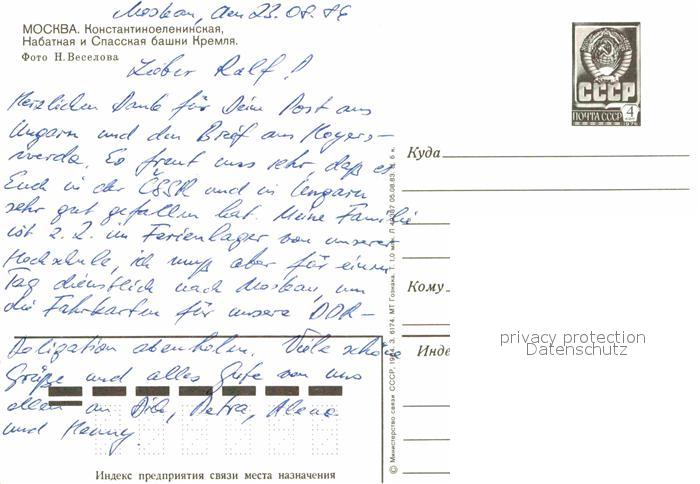 Moskau, den 23.08.86
МОСКВА. Константиноеленинская,
Набатная и Спасская башни Кремля.
Фото Н. Веселова
Lieber Ralf!
Herzlichen Dank für Deine Post aus
Ungarn und den Brief aus Hoyers-
werda. Es freut uns sehr, daß es
Euch in der ČSSR und in Ungarn
sehr gut gefallen hat. Meine Familie
ist z. Z. im Ferienlager von unserer
Hochschule, ich muß aber für einen
Tag dienstlich nach Moskau, um
die Fahrkarten für unsere DDR-
Deligation abzuholen. Viele schöne
Grüße und alles Gute von uns
allen an Dich, Petra,
und
СССР
ПОЧТА СССР 4
1976
Куда
Кому
Инде
privacy protection
Datenschutz
Индекс предприятия связи места назначения
© Министерство связи СССР, 05.08.83.